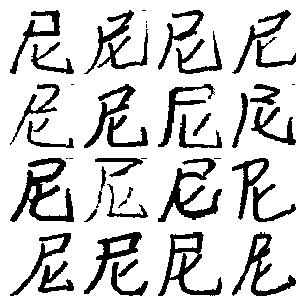 尼尼尼尼
尼尼尼尼
尼尼尼尼
尼尼尼尼